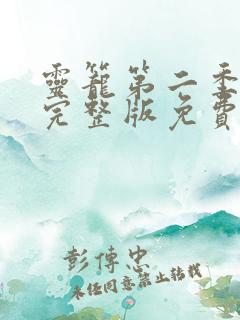 靈籠第二季
完整版免費
彭傳忠
未経同意禁止转载